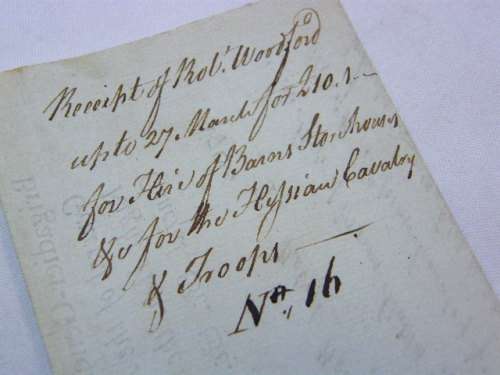 Receipt of Robt. Woodford
upto 27 March for £10.1--
for Hire of Barns Storehouses
&c for the Hessian Cavalry
& Troops —
No. 16